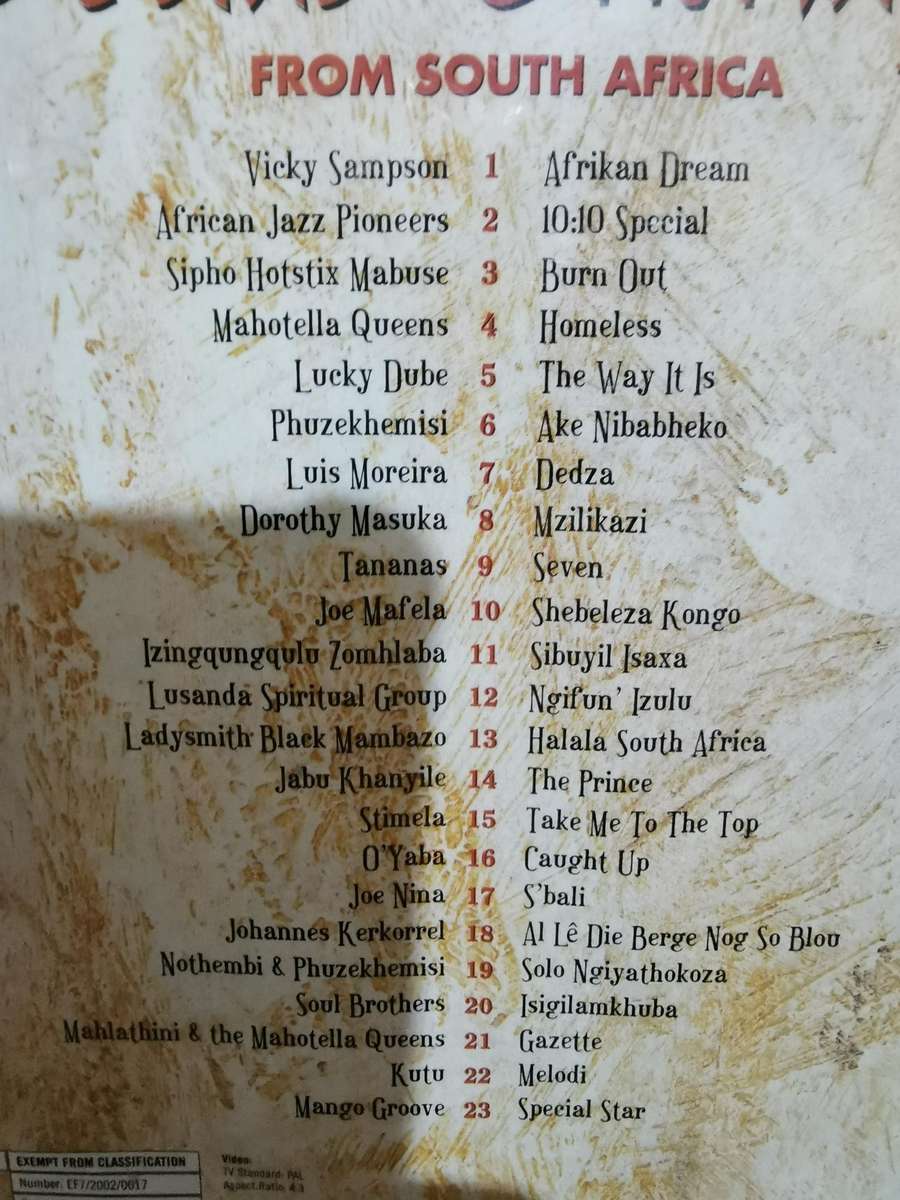 FROM SOUTH AFRICA
Vicky Sampson 1 Afrikan Dream
African Jazz Pioneers 2 10:10 Special
Sipho Hotstix Mabuse 3 Burn Out
Mahotella Queens 4 Homeless
Lucky Dube 5 The Way It Is
Phuzekhemisi 6 Ake Nibabheko
Luis Moreira 7 Dedza
Dorothy Masuka 8 Mzilikazi
Tananas 9 Seven
Joe Mafela 10 Shebeleza Kongo
Izingqungqulu Zomhlaba 11 Sibuyil Isaxa
Lusanda Spiritual Group 12 Ngifun' Izulu
Ladysmith Black Mambazo 13 Halala South Africa
Jabu Khanyile 14 The Prince
Stimela 15 Take Me To The Top
O'Yaba 16 Caught Up
Joe Nina 17 S'bali
Johannes Kerkorrel 18 Al Lê Die Berge Nog So Blou
Nothembi & Phuzekhemisi 19 Solo Ngiyathokoza
Soul Brothers 20 Isigilamkhuba
Mahlathini & the Mahotella Queens 21 Gazette
Kutu 22 Melodi
Mango Groove 23 Special Star
EXEMPT FROM CLASSIFICATION
Number: EF7/2002/0017
Video:
TV Standard: PAL
Aspect Ratio 4:3